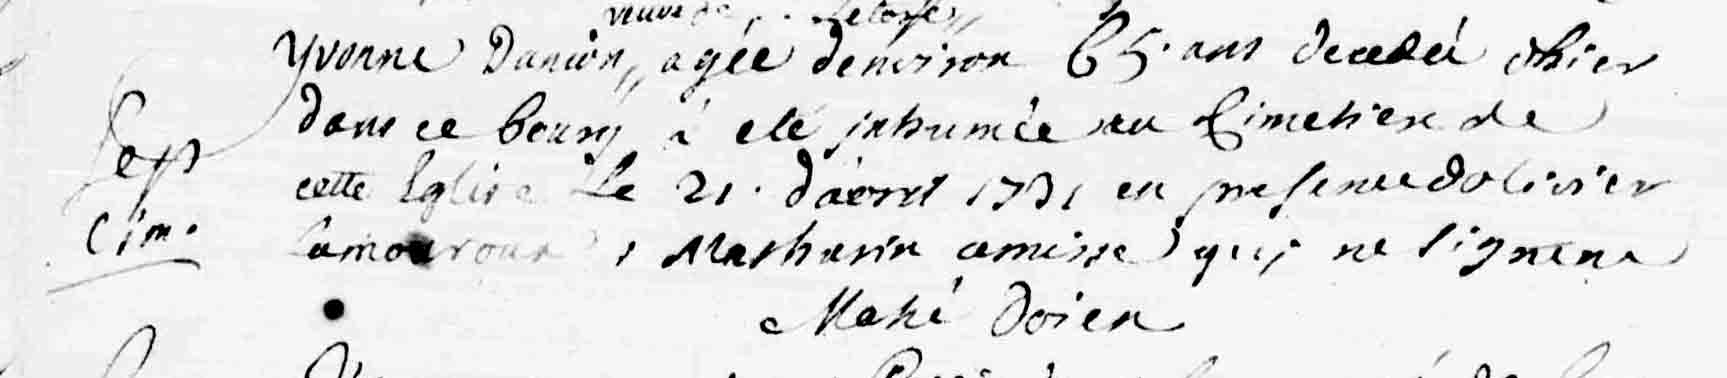 veuve de
Yvonne Danion, agée d'environ 65 ans decedeé d'hier
dans ce bourg à eté inhumée au Cimetiere de
Sep
cette Eglise Le 21. d'avril 1731 en presence d'olivier
cim.
Lamouroux, Mathurin qui ne signent
Mahé doien